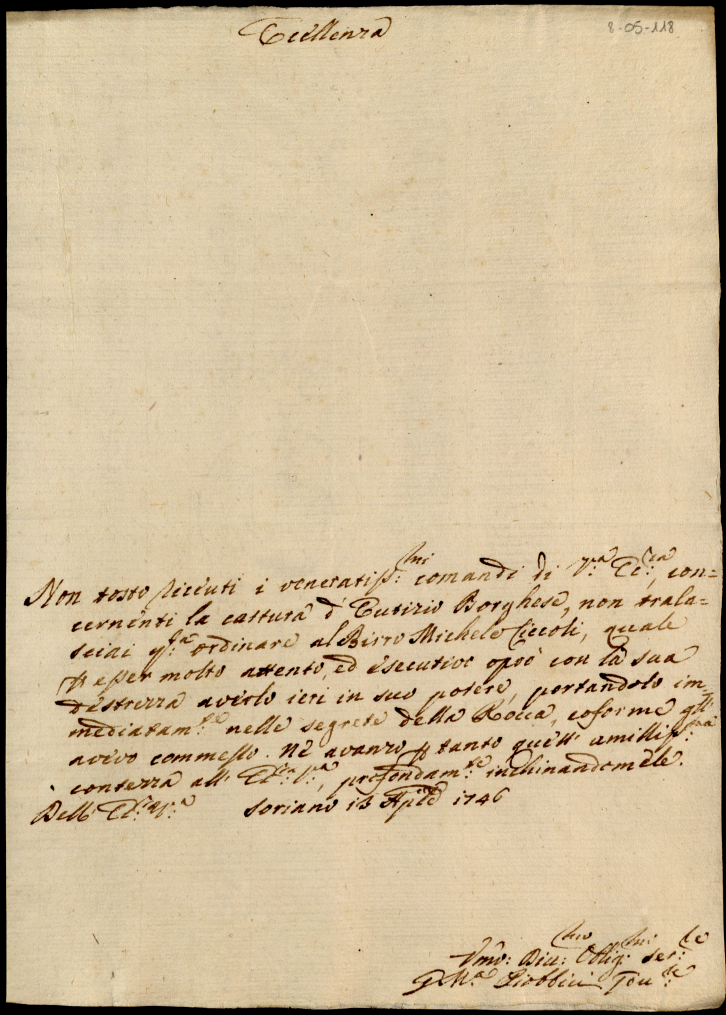 8-05-118
Eccellenza
Non tosto riceuti i veneratiss:mi comandi di V:ra Ecc:za, con=
cernenti la cattura d'Eutizio Borghese, non trala=
sciai q:ta ordinare al Birro Michele Ciccoli, quale
p esser molto attento, ed esecutivo oprò con la sua
destrezza averlo ieri in suo potere, portandolo im=
mediatam:te nelle segrete della Rocca, coforme gli
avevo commesso. Nè avanzo p tanto quest' umiliss:ma
contezza all' Ecc:za V:ra, profondam:te inchinandomele.
Dell' Ecc:za V:ra Soriano 13 Aprile 1746
Umo: Dev:mo Oblig:mo Ser:re
G Ma